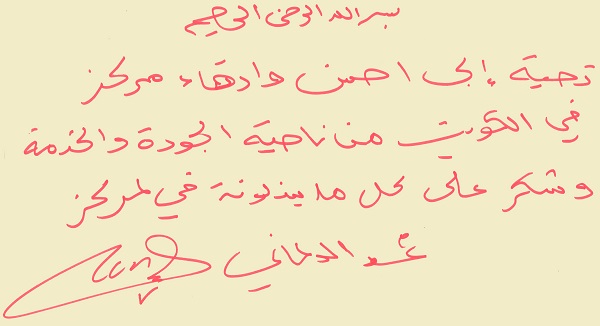 بسم الله الرحمن الرحيم
تحية إلى احسن وادهاء مركز
في الكويت من ناحية الجودة والخدمة
وشكر على كل ما يبذلونة في لمركز